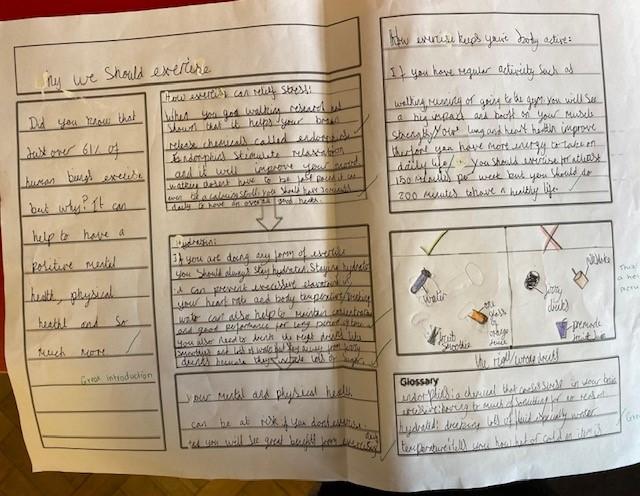 why we should exercise
Did you know that
Just over 61% of
human beings exercise
but why? It can
help to have a
positive mental
health, physical
healtht and so
much more
Great introduction
How exercise can relieve Stress:
When you go walking research has
shown that it helps your brain
release chemicals called endorphins
Endorphins Stimulate relaxation
and it well improve your mood
walking doesnt have to be fast paced it can
even be a calming stroll. you should have 30 minutes
daily to have an overall good health.
Hydration:
If you are doing any form of exercise
you Should always Stay hydrated. Staying hydrated
it can prevent excessive
your heart rate and body temperature. Drinking
water can also help to maintain concentration
and good performance for long periods of time
you also need to drink the right drinks like
Smoothies and lots of water but stay away from
drinks because they include lots of Sugar.
your mental and physical health
can be at risk if you dont exercise.
you will see great benefits from
How exercise keeps your body active:
If you have regular activity such as
walking running or going to the gym you will see
a big impact and boost on your muscle
Strength. Your lung and heart health improve
therefore you have more energy to take on
daily life. You should exercise for atleast
150 minutes per week but you should do
200 minutes to have a healthy life.
water
one glass of orange juice
fruit Smoothie
fizzy drinks
Milkshake
premade
the right/wrong drinks
Glossary
endorphins: a chemical that in your brain
excessive: having to much of something for no reason.
hydrated: drinking lots of fluid specialy water
temperature: tells you how hot or cold an item is